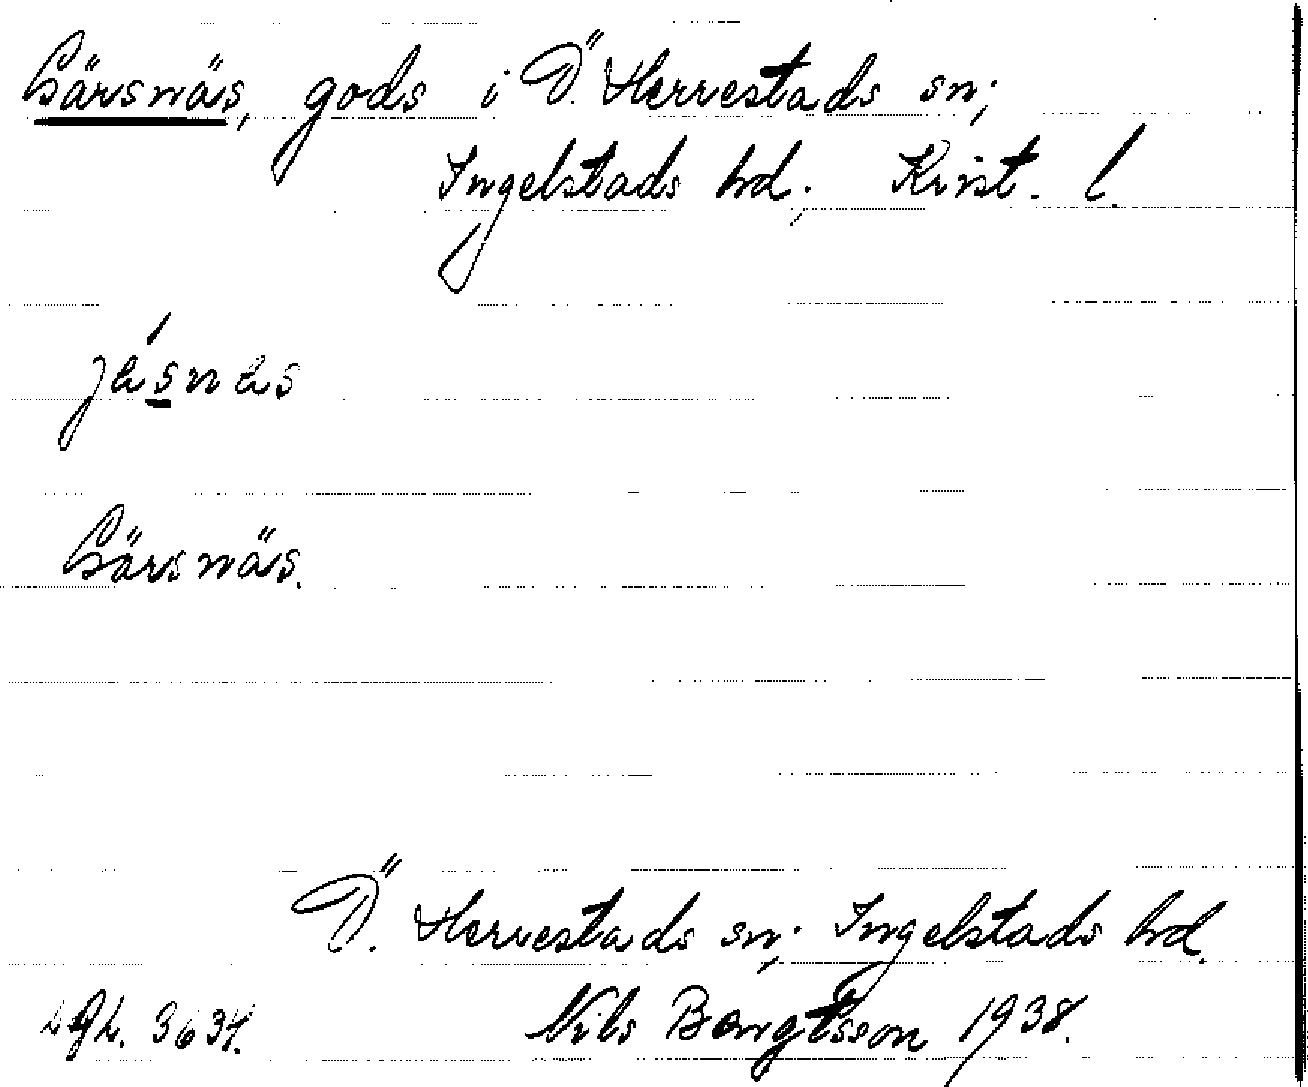 Gärsnäs, gods i Ö. Herrestads sn;
Ingelstads hd; Krist. l.
jä́snäs
Gärsnäs.
Ö. Herrestads sn; Ingelstads hd.
3634. Nils Bengtsson 1938.